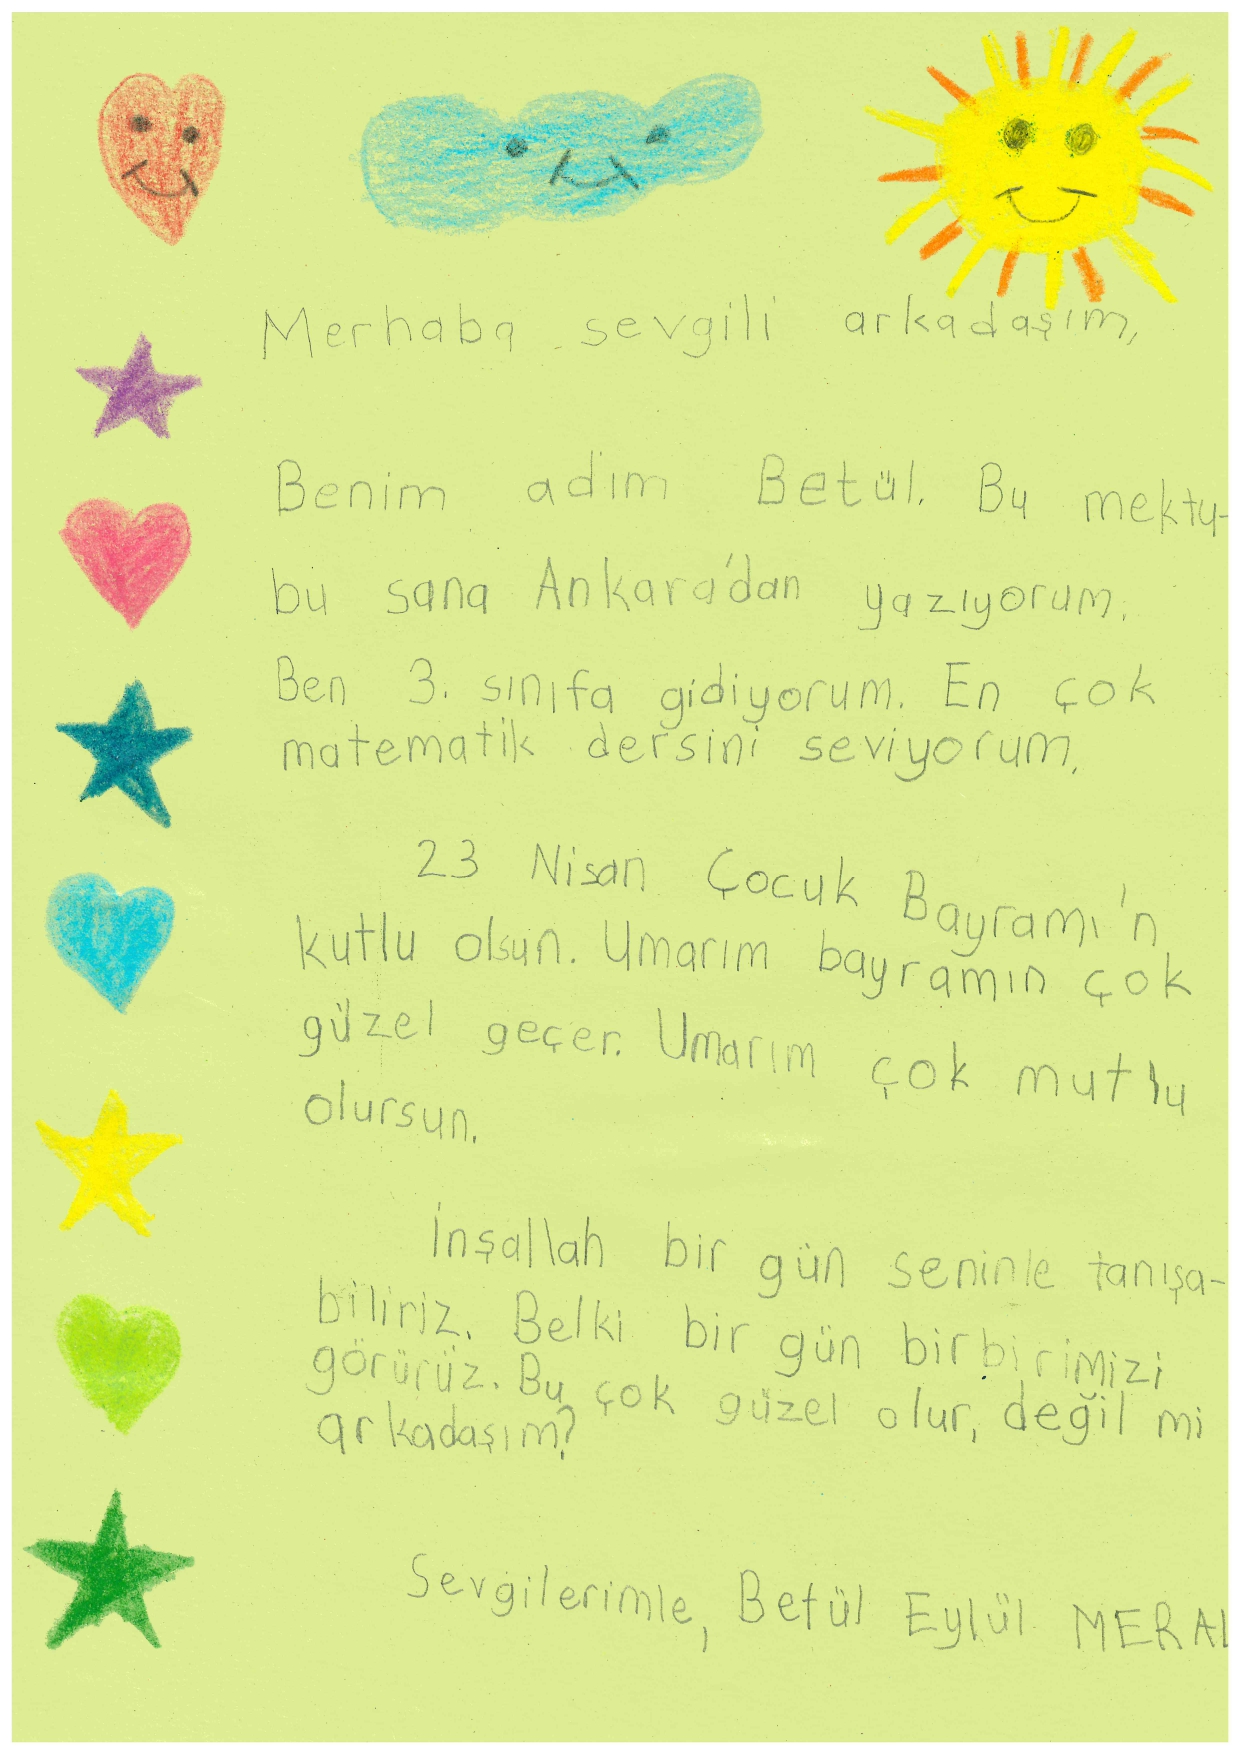 Merhaba sevgili arkadaşım,
Benim adım Betül. Bu mektu-
bu sana Ankara'dan yazıyorum.
Ben 3. sınıfa gidiyorum. En çok
matematik dersini seviyorum.
23 Nisan Çocuk Bayramı'n
kutlu olsun. Umarım bayramın çok
güzel geçer. Umarım çok mutlu
olursun.
İnşallah bir gün seninle tanışa-
biliriz. Belki bir gün birbirimizi
görürüz. Bu çok güzel olur, değil mi
arkadaşım?
Sevgilerimle, Betül Eylül MERAL